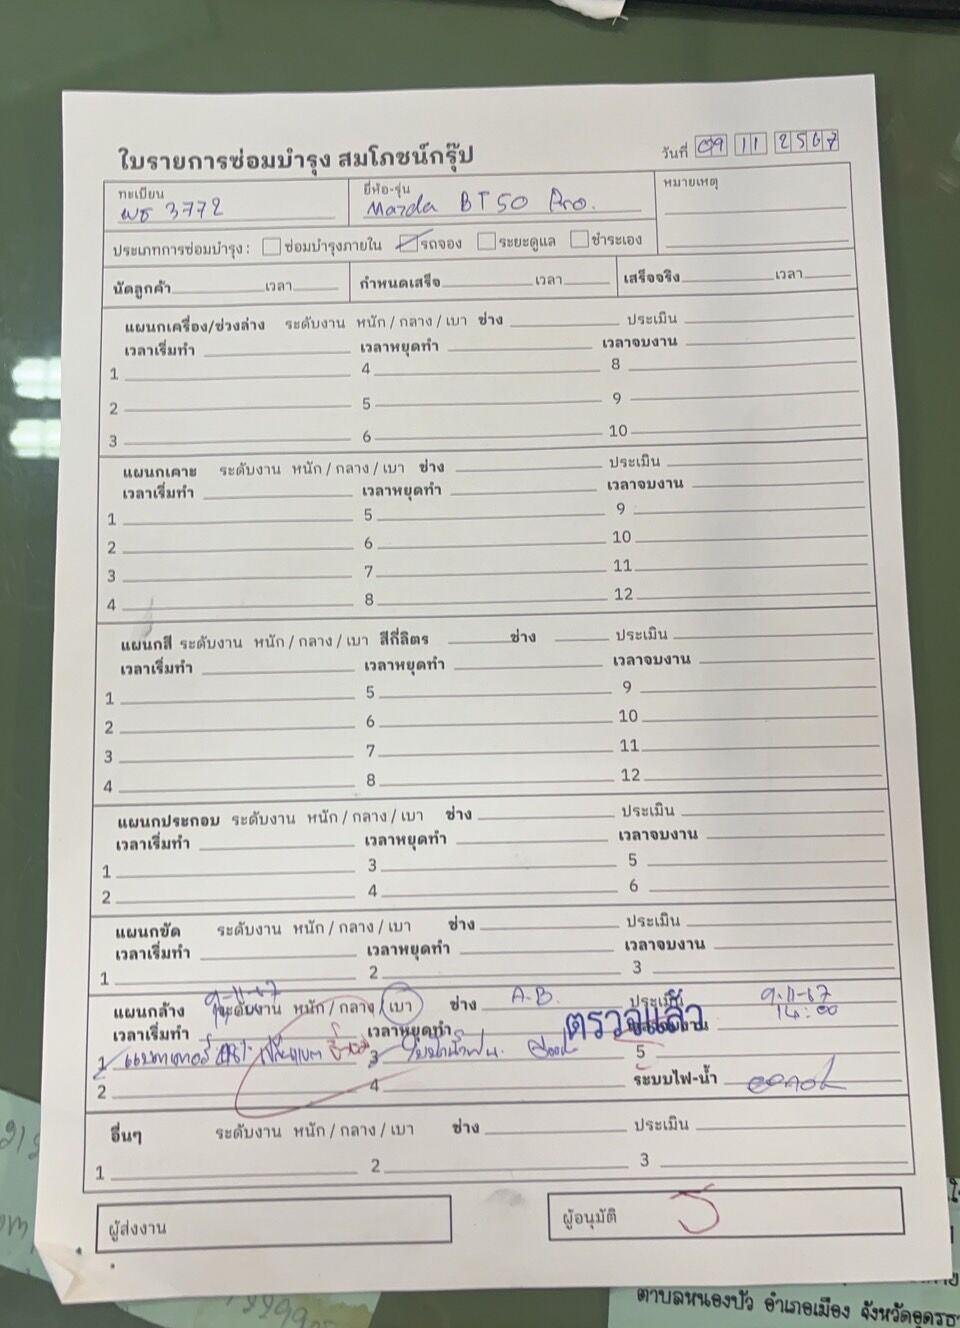 ใบรายการซ่อมบำรุง สมโภชน์กรุ๊ป
วันที่ 09 11 2567
ทะเบียน
3772
ยี่ห้อ-รุ่น
Mazda BT50 Pro.
หมายเหตุ
ประเภทการซ่อมบำรุง : ซ่อมบำรุงภายใน รถจอง ระยะดูแล ชำระเอง
นัดลูกค้า เวลา กำหนดเสร็จ เวลา เสร็จจริง เวลา
แผนกเครื่อง/ช่วงล่าง ระดับงาน หนัก / กลาง / เบา ช่าง ประเมิน
เวลาเริ่มทำ เวลาหยุดทำ เวลาจบงาน
1 4 8
2 5 9
3 6 10
แผนกเคาะ ระดับงาน หนัก / กลาง / เบา ช่าง ประเมิน
เวลาเริ่มทำ เวลาหยุดทำ เวลาจบงาน
1 5 9
2 6 10
3 7 11
4 8 12
แผนกสี ระดับงาน หนัก / กลาง / เบา สีกี่ลิตร ช่าง ประเมิน
เวลาเริ่มทำ เวลาหยุดทำ เวลาจบงาน
1 5 9
2 6 10
3 7 11
4 8 12
แผนกประกอบ ระดับงาน หนัก / กลาง / เบา ช่าง ประเมิน
เวลาเริ่มทำ เวลาหยุดทำ เวลาจบงาน
1 3 5
2 4 6
แผนกขัด ระดับงาน หนัก / กลาง / เบา ช่าง ประเมิน
เวลาเริ่มทำ เวลาหยุดทำ เวลาจบงาน
1 2 3
9-11-67
แผนกล้าง ระดับงาน หนัก / กลาง / เบา ช่าง A.B. ประเมิน 9-11-67
เวลาเริ่มทำ เวลาหยุดทำ ตรวจแล้ว เวลาจบงาน 14:00
1 แบตเตอรี่ 3 5
2 4 ระบบไฟ-น้ำ
อื่นๆ ระดับงาน หนัก / กลาง / เบา ช่าง ประเมิน
1 2 3
ผู้ส่งงาน
ผู้อนุมัติ
ตำบลหนองบัว อำเภอเมือง จังหวัดอุดรธา